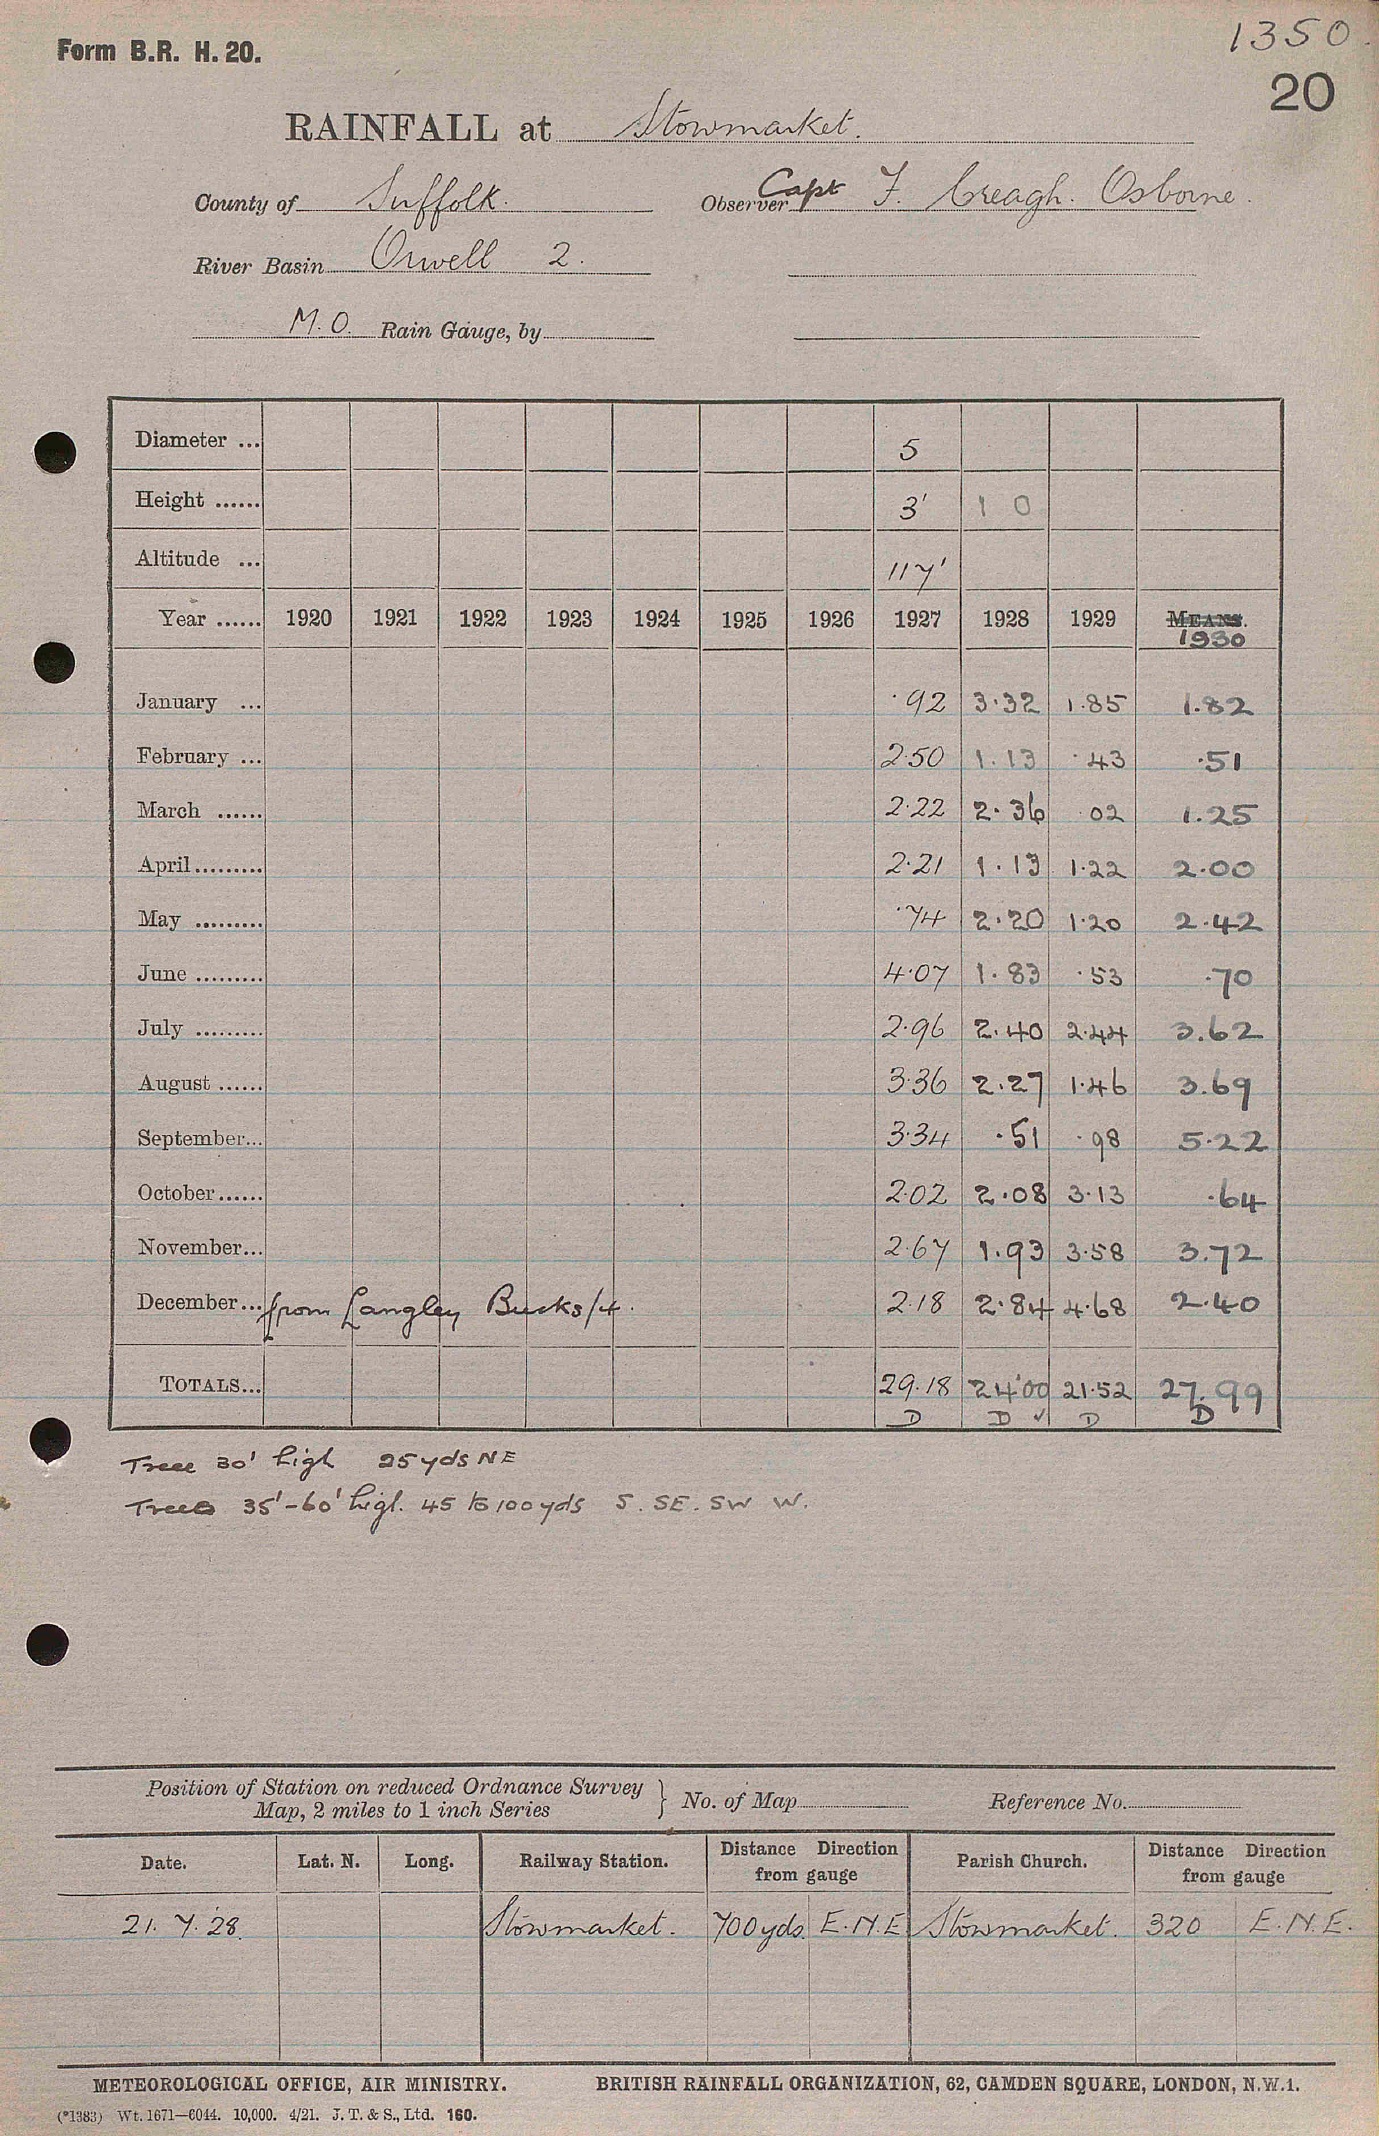 Form B.R. H. 20.
1350.
20
RAINFALL at Stowmarket.
County of Suffolk. Observer Capt F. Creagh. Osborne.
River Basin Orwell 2.
M.O. Rain Gauge, by
Diameter ... 5
Height ...... 3' 1 0
Altitude ... 117'
Year ...... 1920 1921 1922 1923 1924 1925 1926 1927 1928 1929 MEANS.
1930
January ... .92 3.32 1.85 1.82
February ... 2.50 1.13 .43 .51
March ...... 2.22 2.36 .02 1.25
April ......... 2.21 1.13 1.22 2.00
May ......... .74 2.20 1.20 2.42
June ......... 4.07 1.83 .53 .70
July ......... 2.96 2.40 2.44 3.62
August ...... 3.36 2.27 1.46 3.69
September... 3.34 .51 .98 5.22
October...... 2.02 2.08 3.13 .64
November... 2.67 1.93 3.58 3.72
December... from Langley Bucks/4. 2.18 2.84 4.68 2.40
TOTALS... 29.18 24.00 21.52 27.99
D D ✓ D D
Tree 30' high 25 yds NE
Trees 35'-60' high. 45 to 100 yds S. SE. SW W.
Position of Station on reduced Ordnance Survey
Map, 2 miles to 1 inch Series } No. of Map Reference No.
Date. Lat. N. Long. Railway Station. Distance Direction from gauge Parish Church. Distance Direction from gauge
21. 7. '28. Stowmarket. 700 yds. E.N.E Stowmarket. 320 E.N.E.
METEOROLOGICAL OFFICE, AIR MINISTRY. BRITISH RAINFALL ORGANIZATION, 62, CAMDEN SQUARE, LONDON, N.W.1.
(*1383) Wt. 1671—6044. 10,000. 4/21. J. T. & S., Ltd. 160.